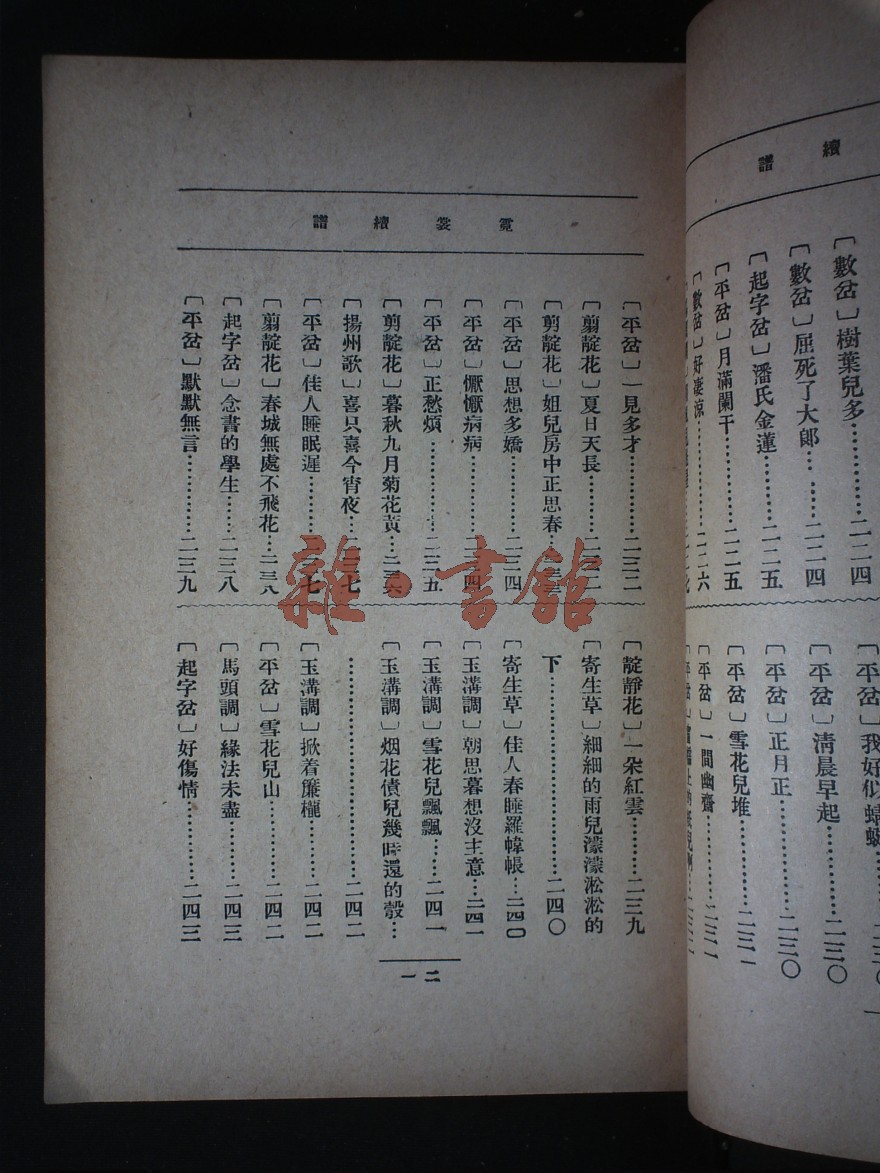 續譜
〔數岔〕樹葉兒多…………二二四
〔數岔〕屈死了大郎……二二四
〔起字岔〕潘氏金蓮………二二五
〔平岔〕月滿闌干…………二二五
〔數岔〕好凄涼……………二二六
〔平岔〕我好似蜻
〕清晨早起………二三〇
〔平岔〕正月正……………二三〇
〔平岔〕雪花兒堆…………二三一
〔平岔〕一間幽齋…………二三一
霓裳續譜
〔平岔〕一見多才…………二三二
〔翦靛花〕夏日天長………二三二
〔剪靛花〕姐兒房中正思春…
〔平岔〕思想多嬌…………二三四
〔平岔〕懨懨病病…………二三四
〔平岔〕正愁煩……………二三五
〔剪靛花〕暮秋九月菊花黃…二三六
〔揚州歌〕喜只喜今宵夜…二三七
〔平岔〕佳人睡眠遲………二三七
〔翦靛花〕春城無處不飛花…二三八
〔起字岔〕念書的學生……二三八
〔平岔〕默默無言…………二三九
〔靛靜花〕一朵紅雲………二三九
〔寄生草〕細細的雨兒濛濛淞淞的
下…………………………二四〇
〔寄生草〕佳人春睡羅幃帳…二四〇
〔玉溝調〕朝思暮想沒主意…二四一
〔玉溝調〕雪花兒飄飄……二四一
〔玉溝調〕烟花債兒幾時還的彀…
……………………………二四二
〔玉溝調〕掀着簾櫳………二四二
〔平岔〕雪花兒山…………二四二
〔馬頭調〕緣法未盡………二四三
〔起字岔〕好傷情…………二四三
二一
雜·書館